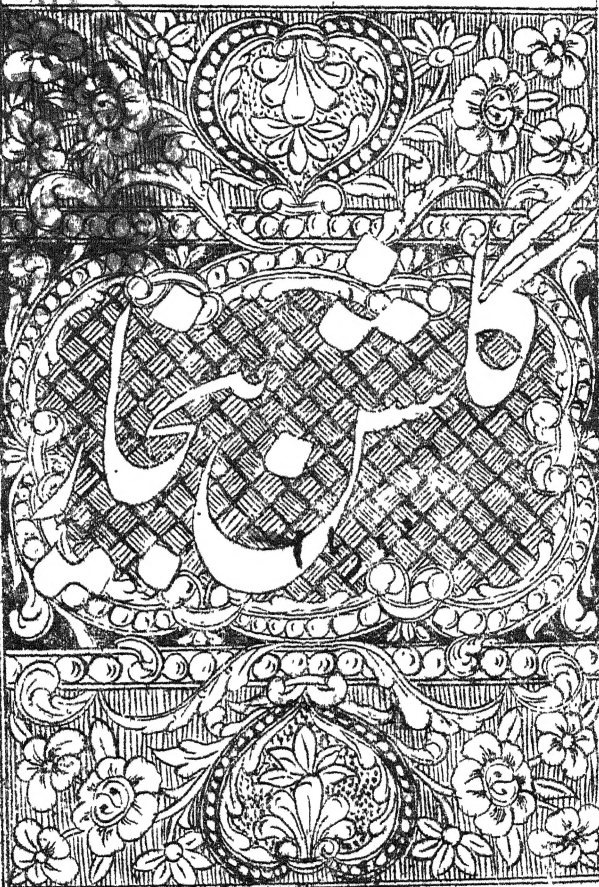 گلشن بیخار